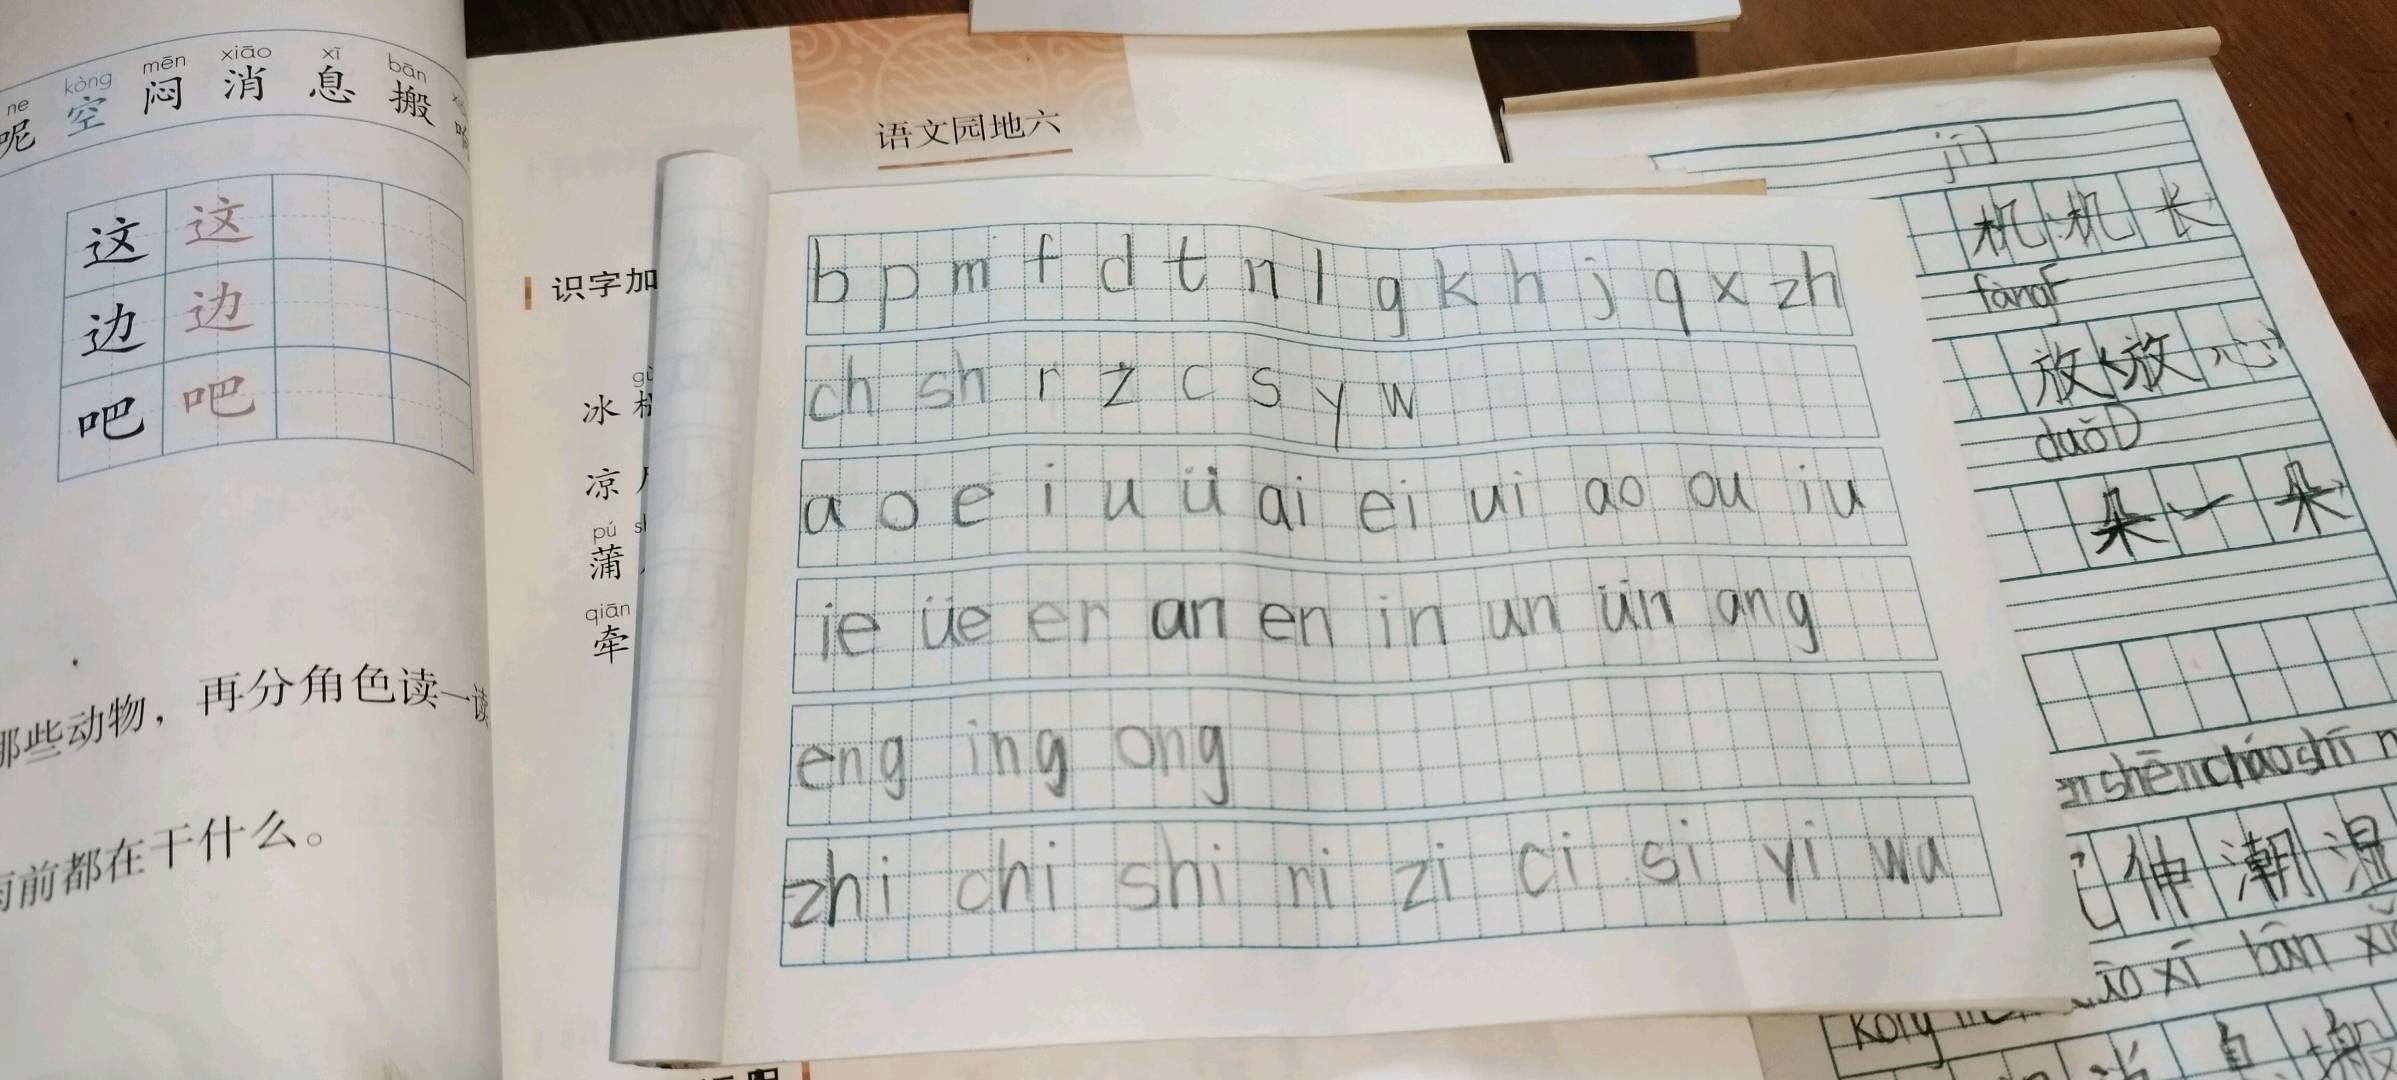 ne kòng mēn xiāo xī bān
呢 空 闷 消 息 搬
这 这
边 边
吧 吧
那些动物，再分角色读一读
雨前都在干什么。
语文园地六
识字加
冰
凉
pú
蒲
qiān
牵
b p m f d t n l g k h j q x zh
ch sh r z c s y w
a o e i u ü ai ei ui ao ou iu
ie üe er an en in un ün ang
eng ing ong
zhi chi shi ri zi ci si yi wu
jī J
机 机 长
fàng F
放 放 心
duǒ D
朵 一 朵
shēn cháo shī
伸 潮 湿
xī bān
息 搬